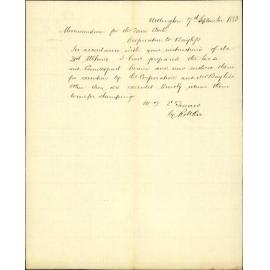 Wellington 7th September 1883
Memorandum for the Town Clerk
Corporation to Bayliss
In accordance with your instructions of the
3rd I have prepared the lease
and Counterpart hereof and now enclose them
for execution by the Corporation and Mr Bayliss
When they are executed kindly return them
to me for stamping
W. T. L. Travers
by